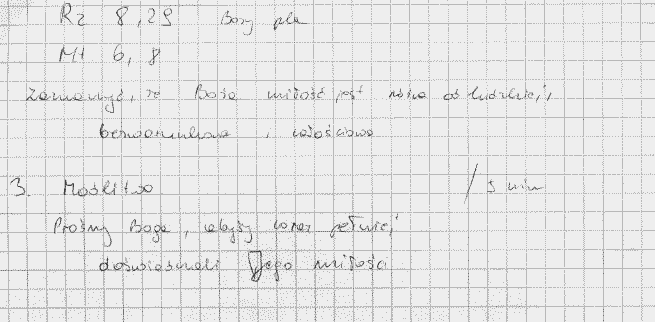 Rz 8,29 Boży plan
Mt 6,8
Zauważyć, że Boża miłość jest różna od ludzkiej,
bezwarunkowa, całościowa
3. Modlitwa / 5 min
Prośmy Boga, abyśmy coraz pełniej
doświadczali Jego miłości